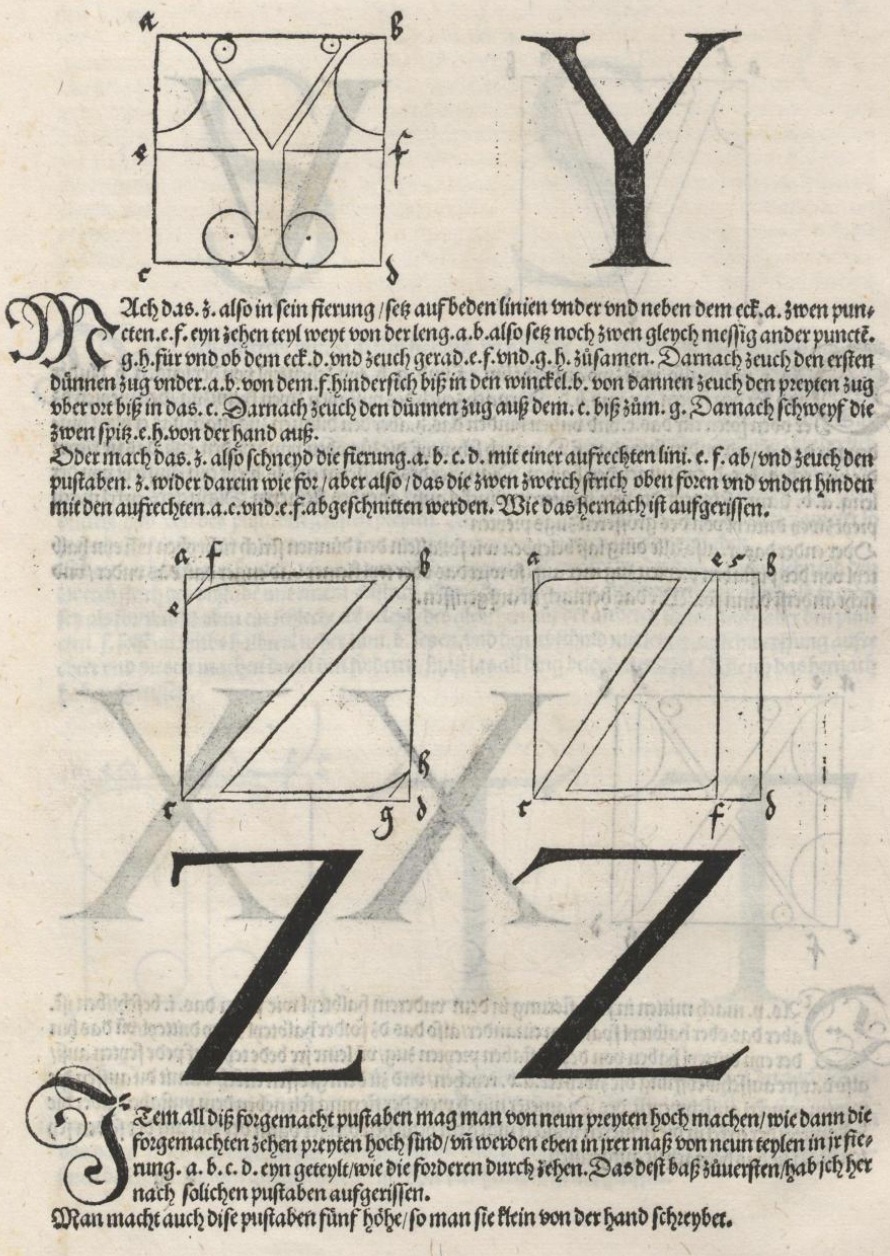 a b
Y
e f
c d
MAch das. z. also in sein fierung / setz auf beden linien vnder vnd neben dem eck. a. zwen pun⸗
cten. e. f. eyn zehen teyl weyt von der leng. a. b. also setz noch zwen gleych messig ander punctē.
g. h. für vnd ob dem eck. d. vnd zeuch gerad. e. f. vnd. g. h. zůsamen. Darnach zeuch den ersten
dünnen zug vnder. a. b. von dem. f. hindersich biß in den winckel. b. von dannen zeuch den preyten zug
vber ort biß in das. c. Darnach zeuch den dünnen zug auß dem. c. biß zům. g. Darnach schweyf die
zwen spitz. e. h. von der hand auß.
Oder mach das. z. also schneyd die fierung. a. b. c. d. mit einer aufrechten lini. e. f. ab / vnd zeuch den
pustaben. z. wider darein wie for / aber also / das die zwen zwerch strich oben foren vnd vnden hinden
mit den aufrechten. a. c. vnd. e. f. abgeschnitten werden. Wie das hernach ist aufgerissen.
a f b a e b
e
h
c g d c f d
Z Z
ITem all diß forgemacht pustaben mag man von neun preyten hoch machen / wie dann die
forgemachten zehen preyten hoch sind / vñ werden eben in jrer maß von neun teylen in jr fie⸗
rung. a. b. c. d. eyn geteylt / wie die forderen durch zehen. Das dest baß zůuersten / hab jch her
nach solichen pustaben aufgerissen.
Man macht auch dise pustaben fünf höhe / so man sie klein von der hand schreybet.